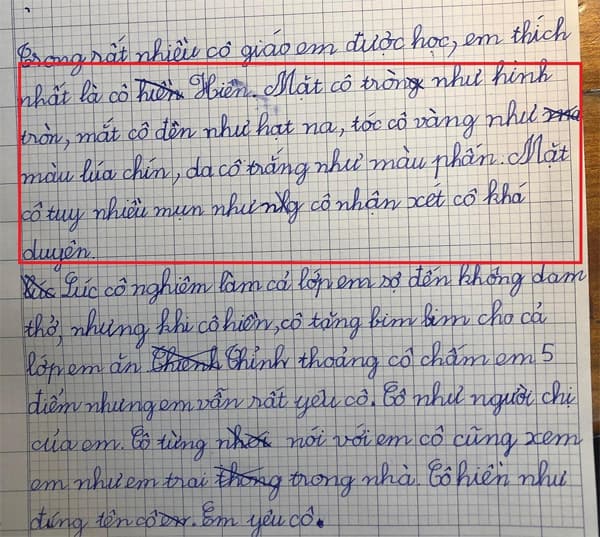 Trong rất nhiều cô giáo em được học, em thích
nhất là cô hiền Hiền. Mặt cô tròng như hình
tròn, mắt cô đên như hạt na, tóc cô vàng như
màu lúa chín, da cô trắng như màu phấn. Mặt
cô tuy nhiều mụn như cô nhận xét cô khá
duyên.
Lúc cô nghiêm lâm cả lớp em sợ đến không dam
thở, nhưng khi cô hiền, cô tặng bim bim cho cả
lớp em ăn. Thỉnh thoảng cô chấm em 5
điểm nhưng em vẫn rất yêu cô. Cô như người chị
của em. Cô từng nói với em cô cũng xem
em như em trai trong nhà. Cô hiền như
đúng tên cô. Em yêu cô.